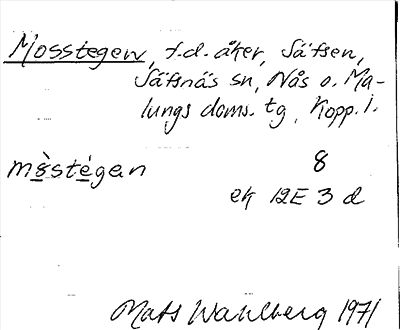 Mosstegen, f.d. åker, Säfsen,
Säfsnäs sn, Nås o. Ma-
lungs doms. tg, Kopp. l.
mòstégan 8
ek 12E 3 d
Mats Wahlberg 1971